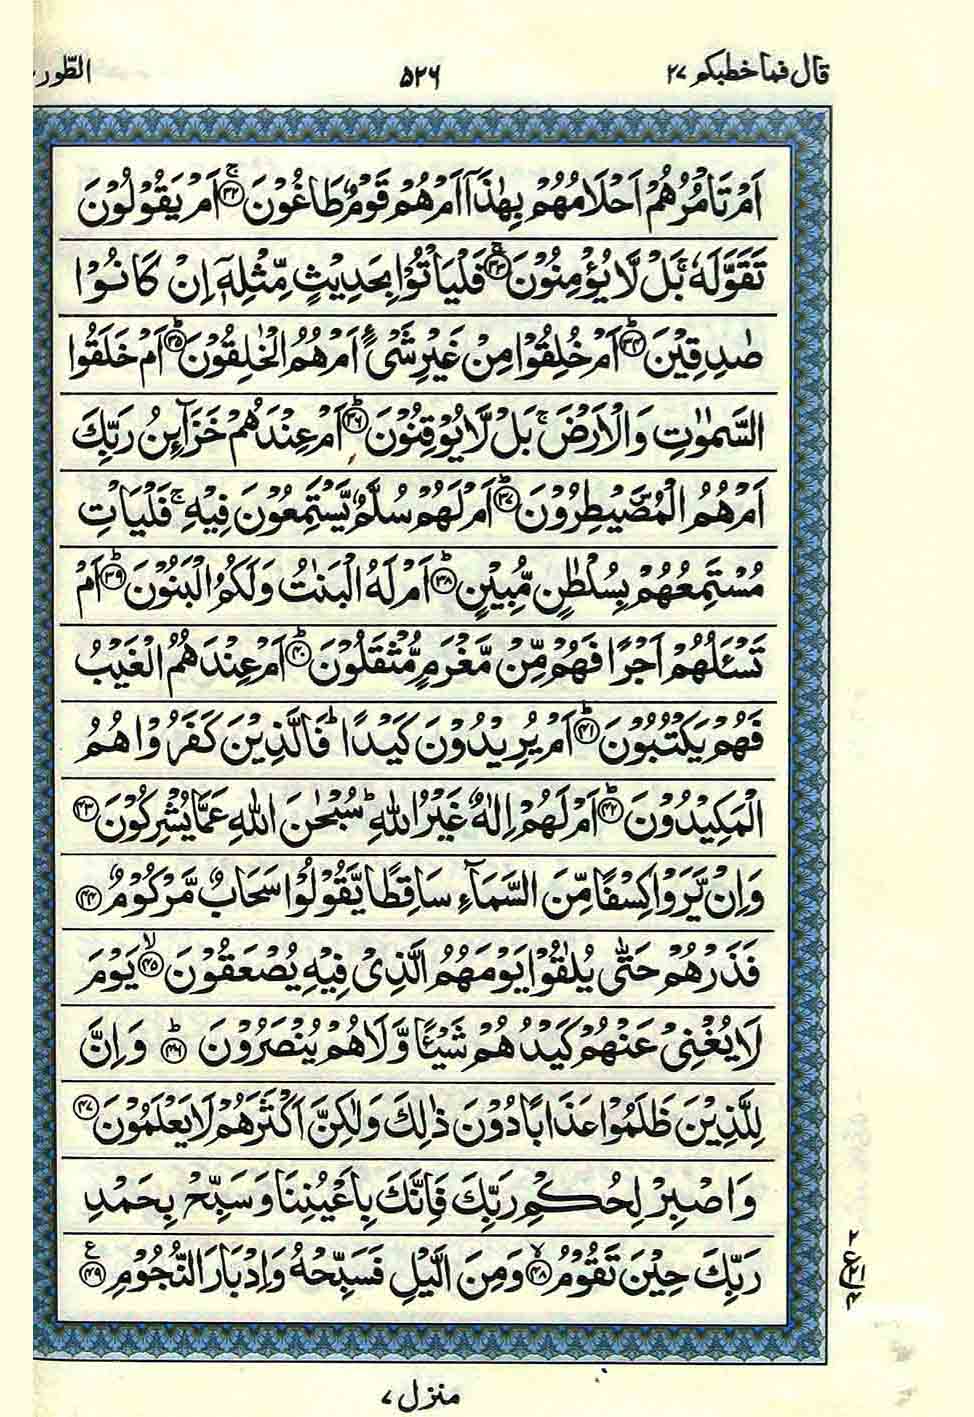 قال فما خطبكم ۲۷ ۵۲۶ الطور
اَمْ تَاْمُرُهُمْ اَحْلَامُهُمْ بِهٰذَآ اَمْ هُمْ قَوْمٌ طَاغُوْنَ ۚ‏﴿۳۲﴾ اَمْ يَقُوْلُوْنَ
تَقَوَّلَهٗ ۚ بَلْ لَّا يُؤْمِنُوْنَ ۚ‏﴿۳۳﴾ فَلْيَاْتُوْا بِحَدِيْثٍ مِّثْلِهٖۤ اِنْ كَانُوْا
صٰدِقِيْنَ ؕ‏﴿۳۴﴾ اَمْ خُلِقُوْا مِنْ غَيْرِ شَيْءٍ اَمْ هُمُ الْخٰلِقُوْنَ ؕ‏﴿۳۵﴾ اَمْ خَلَقُوا
السَّمٰوٰتِ وَالْاَرْضَ ۚ بَلْ لَّا يُوْقِنُوْنَ ؕ‏﴿۳۶﴾ اَمْ عِنْدَهُمْ خَزَآئِنُ رَبِّكَ
اَمْ هُمُ الْمُصَۜيْطِرُوْنَ ؕ‏﴿۳۷﴾ اَمْ لَهُمْ سُلَّمٌ يَّسْتَمِعُوْنَ فِيْهِ ۚ فَلْيَاْتِ
مُسْتَمِعُهُمْ بِسُلْطٰنٍ مُّبِيْنٍ ؕ‏﴿۳۸﴾ اَمْ لَهُ الْبَنٰتُ وَلَكُمُ الْبَنُوْنَ ؕ‏﴿۳۹﴾ اَمْ
تَسْـَٔلُهُمْ اَجْرًا فَهُمْ مِّنْ مَّغْرَمٍ مُّثْقَلُوْنَ ؕ‏﴿۴۰﴾ اَمْ عِنْدَهُمُ الْغَيْبُ
فَهُمْ يَكْتُبُوْنَ ؕ‏﴿۴۱﴾ اَمْ يُرِيْدُوْنَ كَيْدًا ؕ فَالَّذِيْنَ كَفَرُوْا هُمُ
الْمَكِيْدُوْنَ ؕ‏﴿۴۲﴾ اَمْ لَهُمْ اِلٰهٌ غَيْرُ اللّٰهِ ؕ سُبْحٰنَ اللّٰهِ عَمَّا يُشْرِكُوْنَ ﴿۴۳﴾
وَاِنْ يَّرَوْا كِسْفًا مِّنَ السَّمَآءِ سَاقِطًا يَّقُوْلُوْا سَحَابٌ مَّرْكُوْمٌ ﴿۴۴﴾
فَذَرْهُمْ حَتّٰى يُلٰقُوْا يَوْمَهُمُ الَّذِيْ فِيْهِ يُصْعَقُوْنَ ۙ‏﴿۴۵﴾ يَوْمَ
لَا يُغْنِيْ عَنْهُمْ كَيْدُهُمْ شَيْـًٔا وَّلَا هُمْ يُنْصَرُوْنَ ؕ‏﴿۴۶﴾ وَاِنَّ
لِلَّذِيْنَ ظَلَمُوْا عَذَابًا دُوْنَ ذٰلِكَ وَلٰكِنَّ اَكْثَرَهُمْ لَا يَعْلَمُوْنَ ﴿۴۷﴾
وَاصْبِرْ لِحُكْمِ رَبِّكَ فَاِنَّكَ بِاَعْيُنِنَا وَسَبِّحْ بِحَمْدِ
رَبِّكَ حِيْنَ تَقُوْمُ ۙ‏﴿۴۸﴾ وَمِنَ الَّيْلِ فَسَبِّحْهُ وَاِدْبَارَ النُّجُوْمِ ﴿۴۹﴾ ع
۲
ع
۲۱
۴
منزل ۷